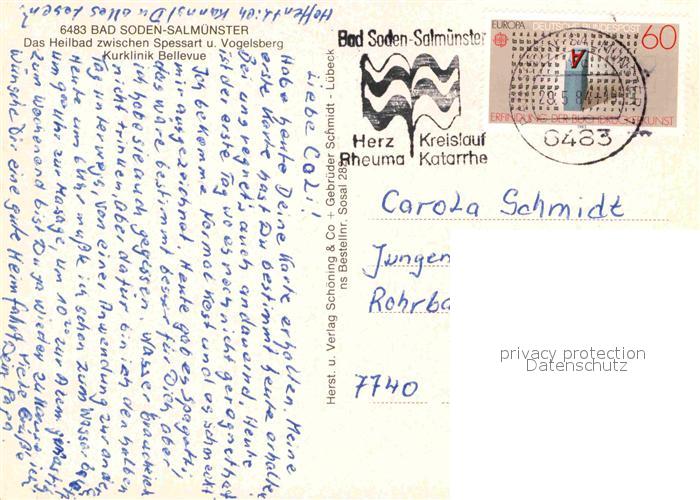 Hoffentlich kannst Du alles lesen?
6483 BAD SODEN-SALMÜNSTER
Das Heilbad zwischen Spessart u. Vogelsberg
Kurklinik Bellevue
Liebe Cali!
Habe heute Deine Karte erhalten. Meine
erste Karte hast Du bestimmt heute erhalten
Bei uns regnet's auch andauernd. Heute
ist der erste Tag wo es noch nicht geregnet hat
Ich bekomme Normal Kost und es schmeckt
mir ausgezeichnet. Heute gab es Spagetti,
das wäre bestimmt besser für Dich aber
ich habe sie auch gegessen. Wasser brauche ich
nicht trinken. Aber dafür bin ich den halben
Tag unterwegs, von einer Anwendung zur andern
Heute um 6 Uhr mußte ich schon zum
um Uhr zur Massage, um 10 zur
zum Wochenend bist Du ja wieder zu Hause ich
wünsche Dir eine gute Heimfahrt Viele Grüße
Dein Papa.
Herst. u. Verlag Schöning & Co + Gebrüder Schmidt - Lübeck
ns Bestellnr. Sosal 28
Bad Soden-Salmünster
Herz Kreislauf
Rheuma Katarrhe
EUROPA DEUTSCHE BUNDESPOST
60
ERFINDUNG DER BUCHDRUCKKUNST
6483
Carola Schmidt
Jungen
Rohrba
7740
privacy protection
Datenschutz